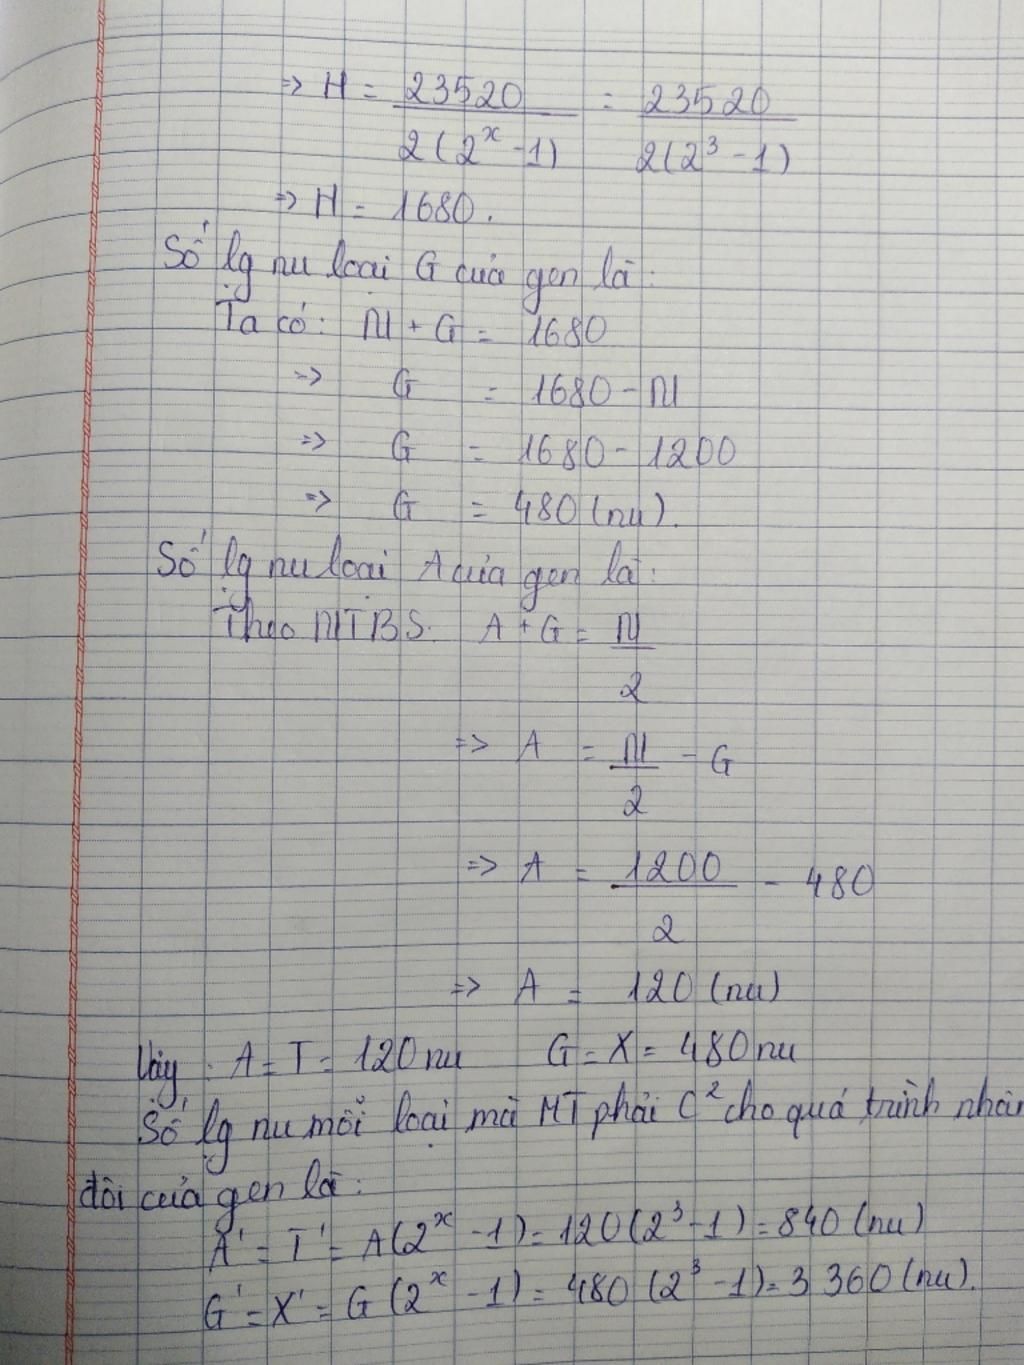 => H = 23520 / 2(2^x - 1) = 23520 / 2(2^3 - 1)
=> H = 1680.
Số lg nu loại G của gen là:
Ta có: N + G = 1680
=> G = 1680 - N
=> G = 1680 - 1200
=> G = 480 (nu).
Số lg nu loại A của gen là:
Theo NTBS. A + G = N / 2
=> A = N / 2 - G
=> A = 1200 / 2 - 480
=> A = 120 (nu)
Vậy: A = T = 120 nu G = X = 480 nu
Số lg nu mỗi loại mà MT phải C² cho quá trình nhân
đôi của gen là:
A' = T' = A(2^x - 1) = 120(2^3 - 1) = 840 (nu)
G' = X' = G(2^x - 1) = 480 (2^3 - 1) = 3 360 (nu).